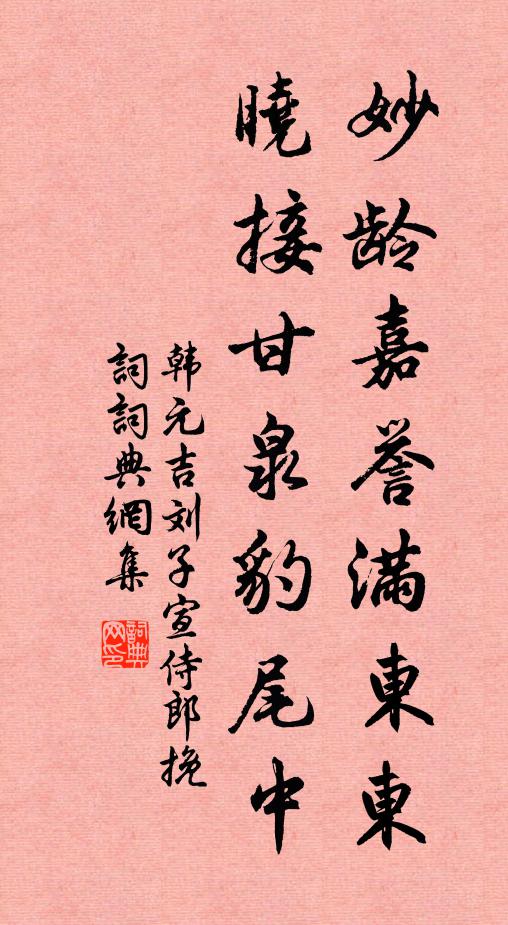 妙龄嘉誉满東東
曉接甘泉豹尾中
韩元吉刘子宣侍郎挽
詞詞典網集
詞典
网印